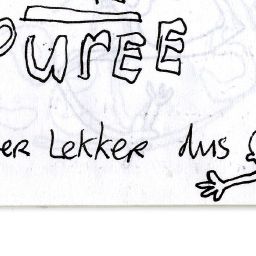 PUREE
ER LEKKER dus